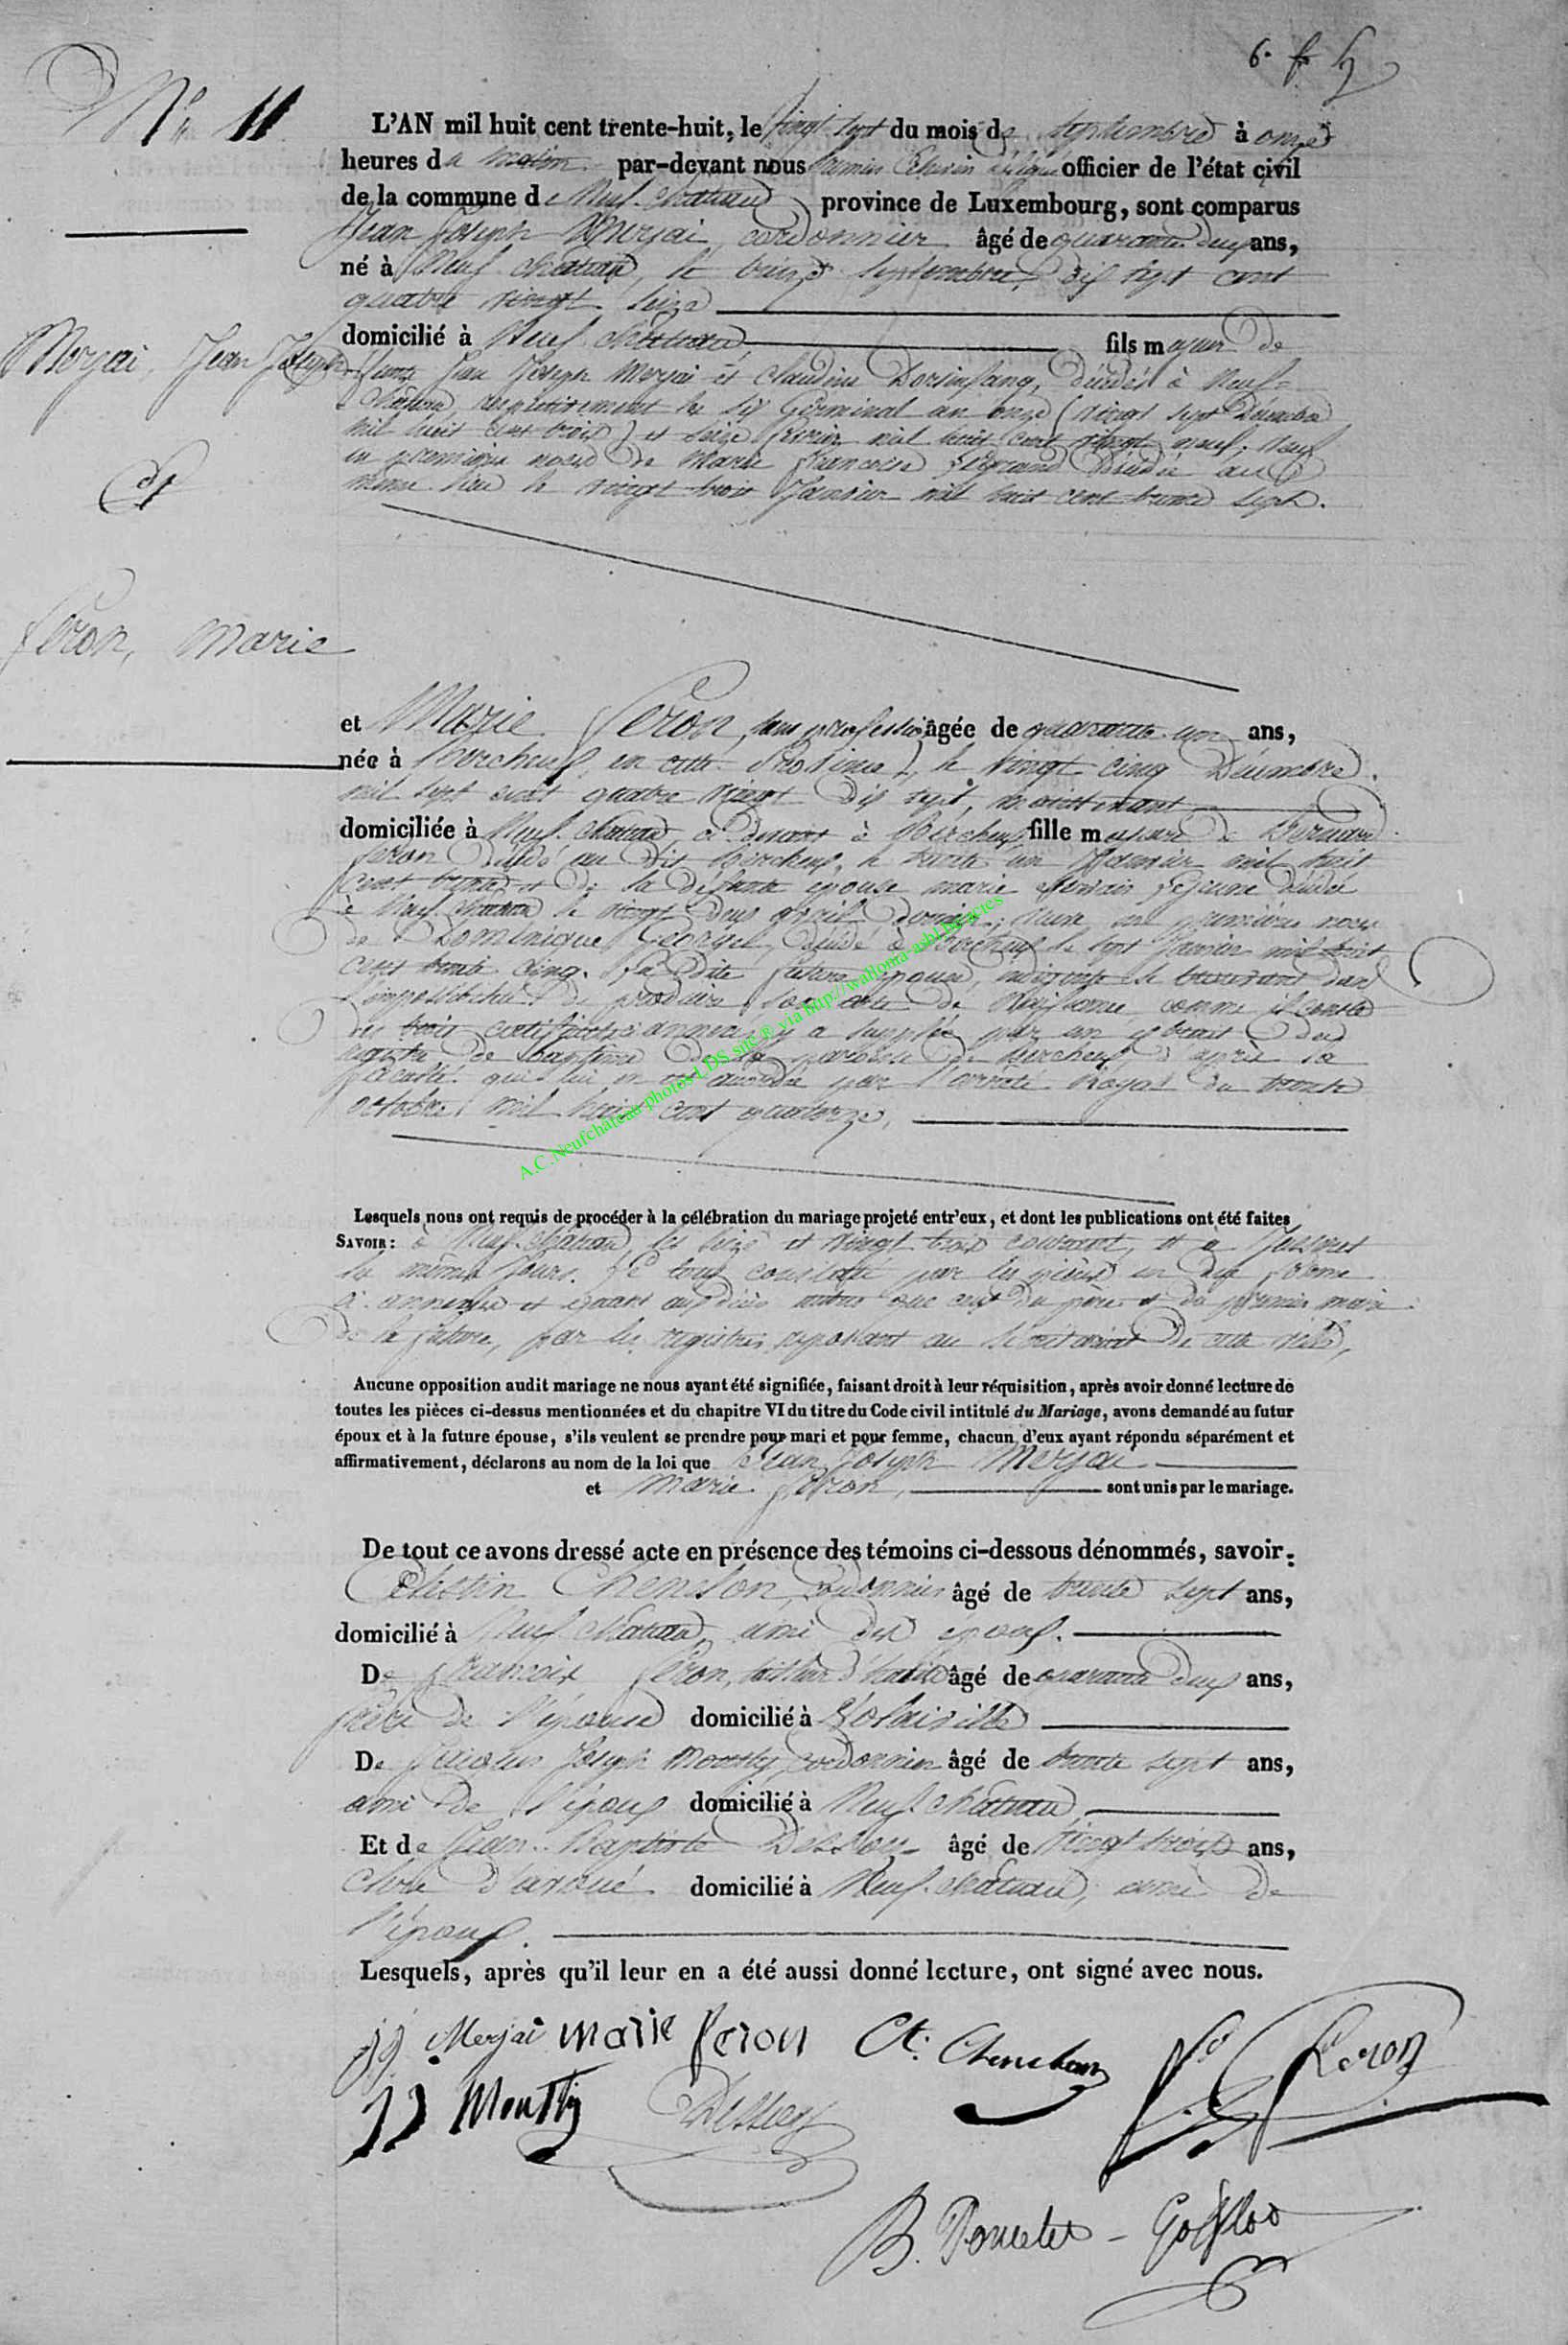 6. f. h
N° 11
L'AN mil huit cent trente-huit, le vingt sept du mois de septembre à onze
heures du matin par-devant nous premier Echevin délégué officier de l'état civil
de la commune de Neufchateau province de Luxembourg, sont comparus
Jean Joseph Merjai, cordonnier âgé de quarante deux ans,
né à Neufchateau, le treize septembre dix sept cent
quatre vingt seize
domicilié à Neufchateau fils majeur de
Merjai, Jean Joseph
feus Jean Joseph Merjai et Claudine Dorsinfang, décédés à Neuf-
chateau, respectivement le six Germinal an onze (vingt sept
mil huit cent trois) et seize février mil huit cent vingt neuf; veuf
en premières noces de Marie Françoise décédée au
même lieu le vingt trois Janvier mil huit cent trente sept.
et
Feron, Marie
et Marie Feron, sans profession âgée de quarante un ans,
née à Bercheux, en cette Province, le vingt cinq Décembre
mil sept cent quatre vingt dix sept, maintenant
domiciliée à Neufchateau ci-devant à Bercheux fille majeure de Bernard
Feron décédé au dit Bercheux, le trente un Janvier mil huit
cent trente et de la défunte épouse marie Lejeune décédée
à Neufchateau le vingt deux avril dernier; veuve en premières noces
de Dominique Georges, décédé à Bercheux le sept Janvier mil huit
cent trente cinq. La dite future épouse, indigente se trouvant dans
l'impossibilité de produire son acte de naissance comme il conste
des trois certificats annexés, y a suppléé par un extrait du
registre de baptême de la paroisse de Bercheux d'après la
faculté qui lui en est accordée par l'arrêté Royal du trente
octobre mil huit cent quatorze.
A.C.Neufchâteau photos LDS suc ® via http://wallonia-asbl.be/actes
Lesquels nous ont requis de procéder à la célébration du mariage projeté entr'eux, et dont les publications ont été faites
SAVOIR: à Neufchateau les seize et vingt trois courant, et à Jusseret
les mêmes jours. Le tout constaté par les pièces en due forme
ci-annexées et quant aux décès autres que ceux du père et du premier mari
de la future, par les registres reposant au secrétariat de cette ville,
Aucune opposition audit mariage ne nous ayant été signifiée, faisant droit à leur réquisition, après avoir donné lecture de
toutes les pièces ci-dessus mentionnées et du chapitre VI du titre du Code civil intitulé du Mariage, avons demandé au futur
époux et à la future épouse, s'ils veulent se prendre pour mari et pour femme, chacun d'eux ayant répondu séparément et
affirmativement, déclarons au nom de la loi que Jean Joseph Merjai
et Marie Feron, sont unis par le mariage.
De tout ce avons dressé acte en présence des témoins ci-dessous dénommés, savoir:
Célestin Chenclon, cordonnier âgé de trente sept ans,
domicilié à Neufchateau, ami des époux.
De François Feron, tailleur d'habits âgé de quarante deux ans,
frère de l'épouse domicilié à Volaiville
De Jacques Joseph Moutty, cordonnier âgé de trente sept ans,
ami de l'époux domicilié à Neufchateau,
Et de Jean-Baptiste âgé de vingt trois ans,
clerc d'avoué domicilié à Neufchateau, ami de
l'époux.
Lesquels, après qu'il leur en a été aussi donné lecture, ont signé avec nous.
JJ Merjai marie feron Ct. Chenclon fs feron
JJ Moutty
B. Poncelet - Goffloo